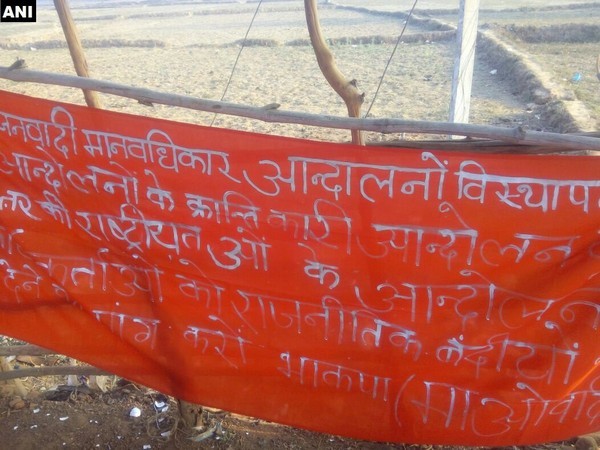 ANI
जनवादी मानवधिकार आन्दालनों विस्थापन
आन्दालनों के क्रान्तिकारी आन्दोलन
को राष्ट्रीयताओं के आन्दोलन
कर्ताओं को राजनीतिक बंदीयों
देने मांग करो भाकपा (माओवादी